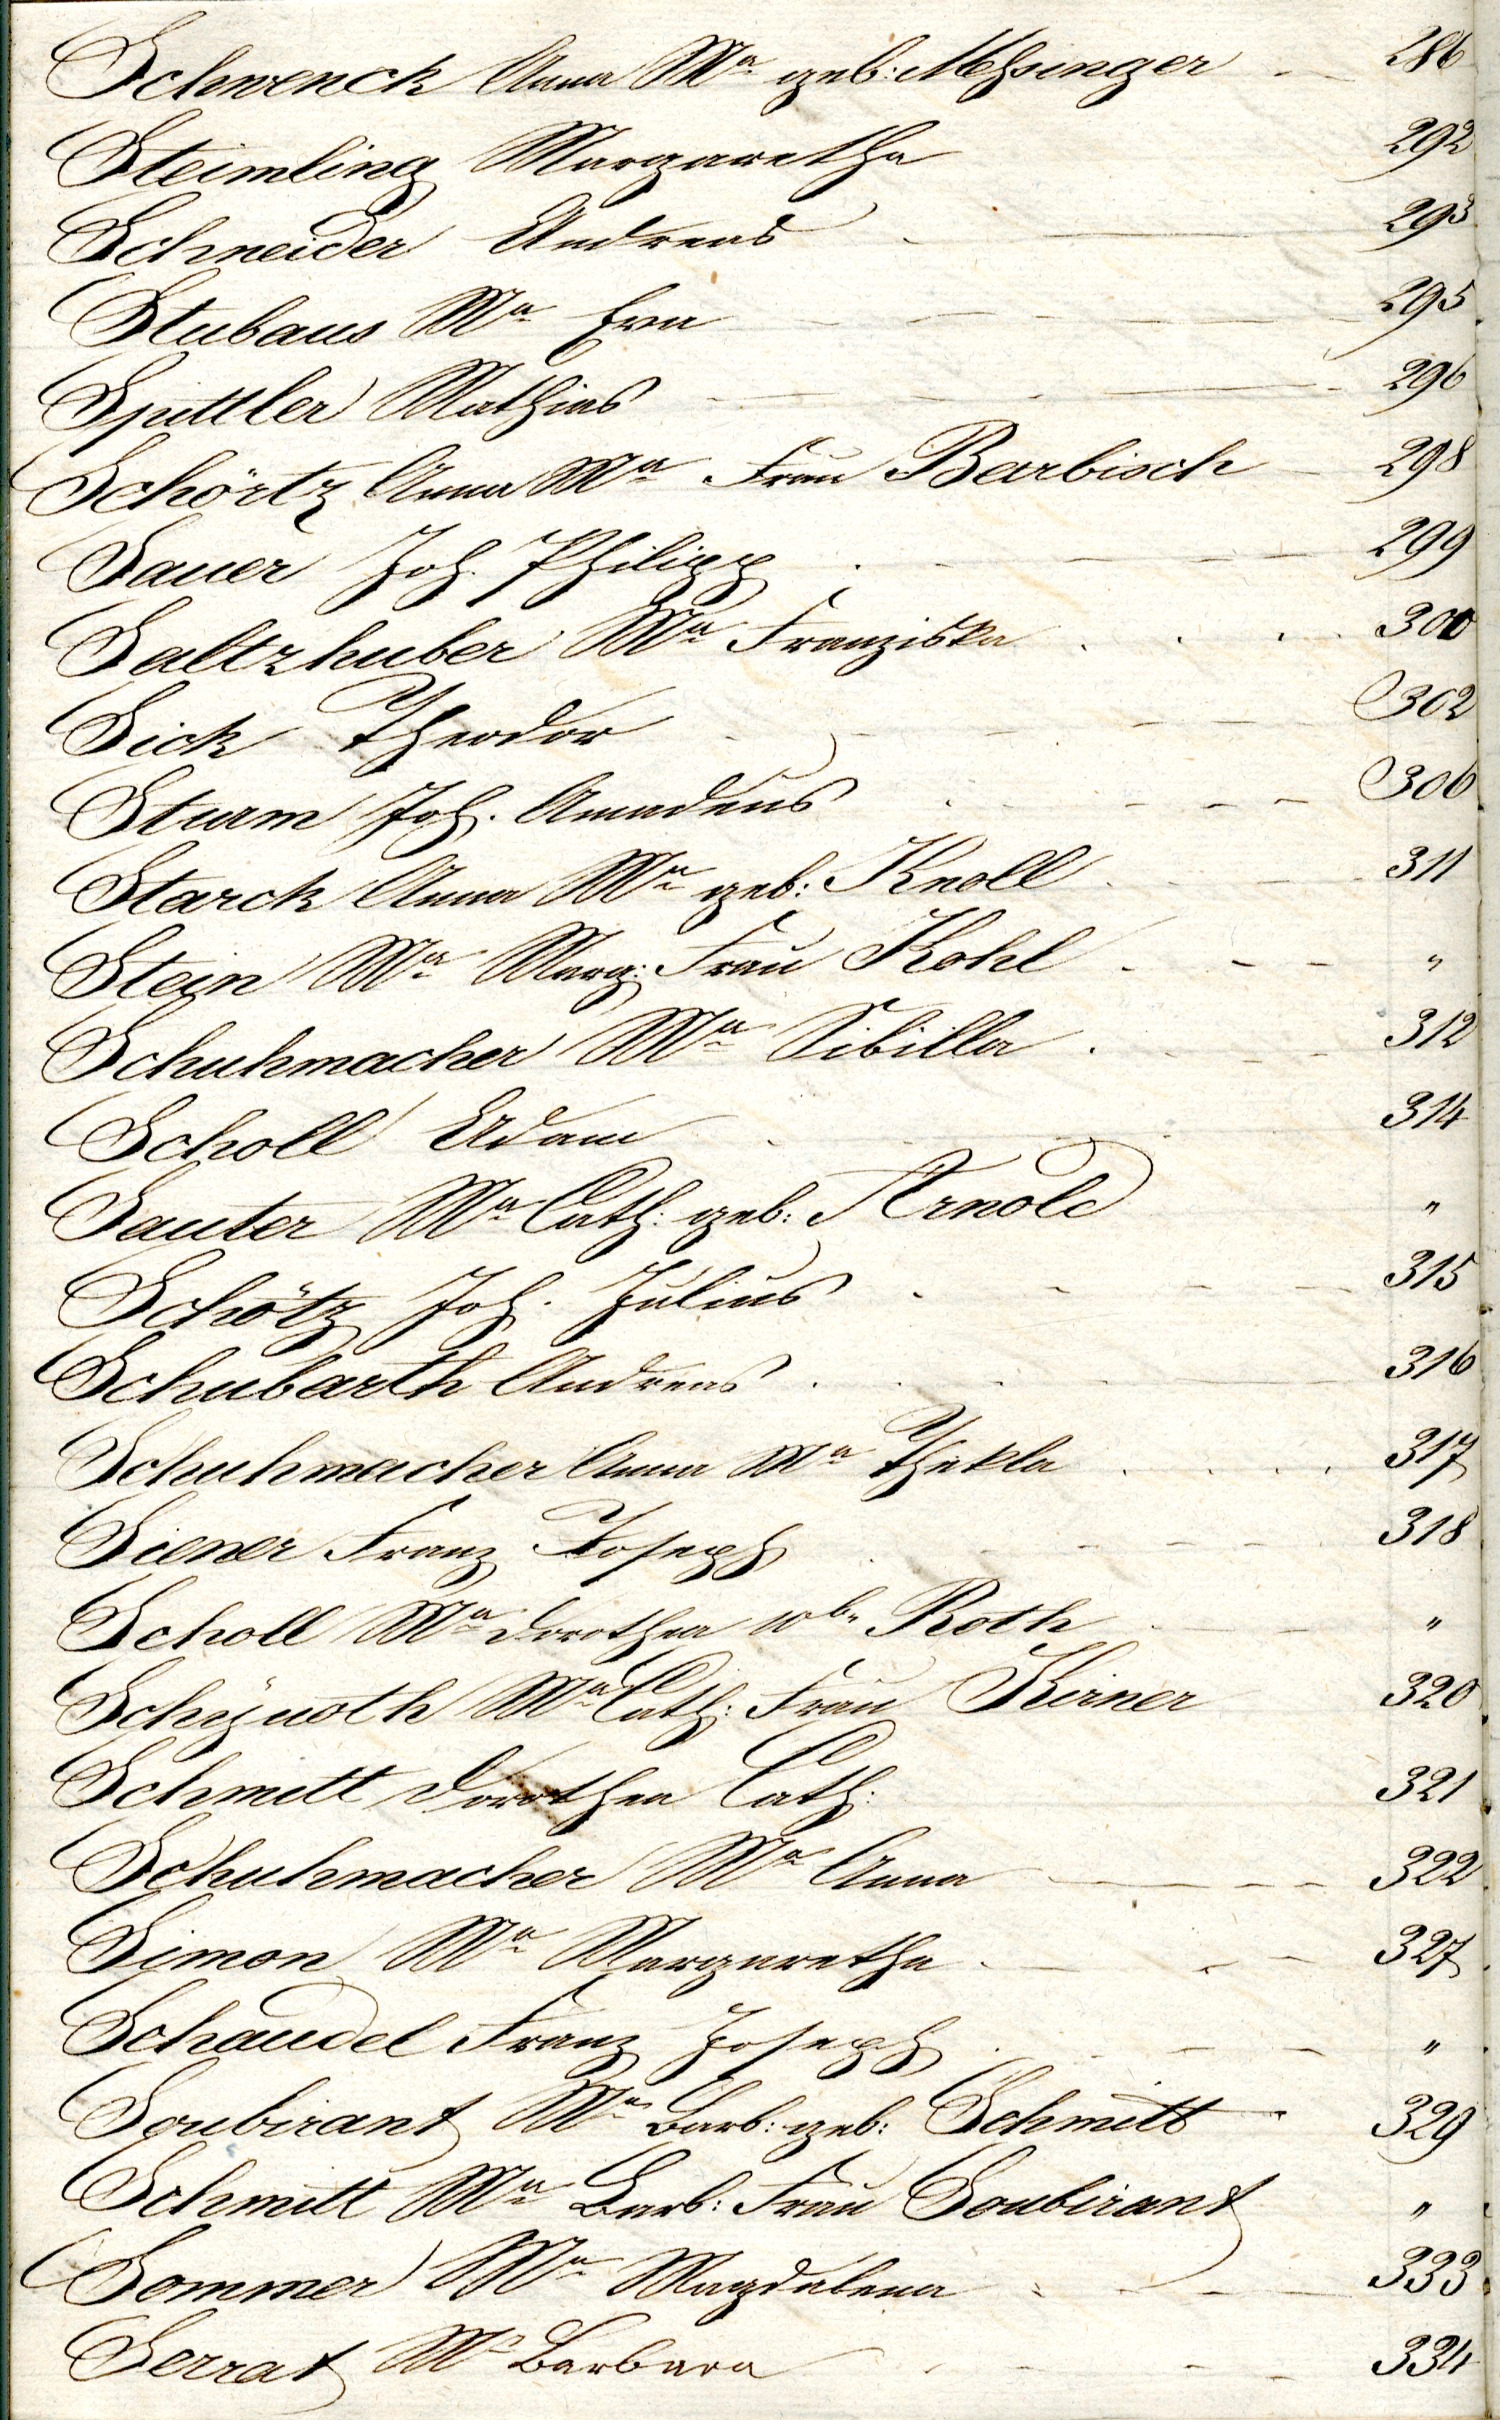 Schwenck Anna Mª geb: Meßinger 286
Steimling Margaretha 292
Schneider Andreas 293
Stubaus Mª Eva 295
Spittler Mathias 296
Schörtz Anna Mª Frau Barbisch 298
Sauer Joh. Philipp 299
Saltzhuber Mª Franziska 300
Sick Theodor 302
Sturm Joh. Amadeus 306
Starck Anna Mª geb: Knoll 311
Stein Mª Marg: Frau Kohl "
Schuhmacher Mª Sibilla 312
Scholl Adam 314
Sauter Mª Cath: geb: Arnold "
Schötz Joh. Julius 315
Schubarth Andreas 316
Schuhmacher Anna Mª Thekla 317
Siener Franz Joseph 318
Scholl Mª Dorothea Roth "
Mª Cath: Frau Kirner 320
Schmitt Dorothea Cath: 321
Schuhmacher Mª Anna 322
Simon Mª Margaretha 327
Schaudel Franz Joseph "
Soubirant Mª Barb: geb: Schmitt 329
Schmitt Mª Barb: Frau Soubirant "
Sommer Mª Magdalena 333
Serrat Mª Barbara 334